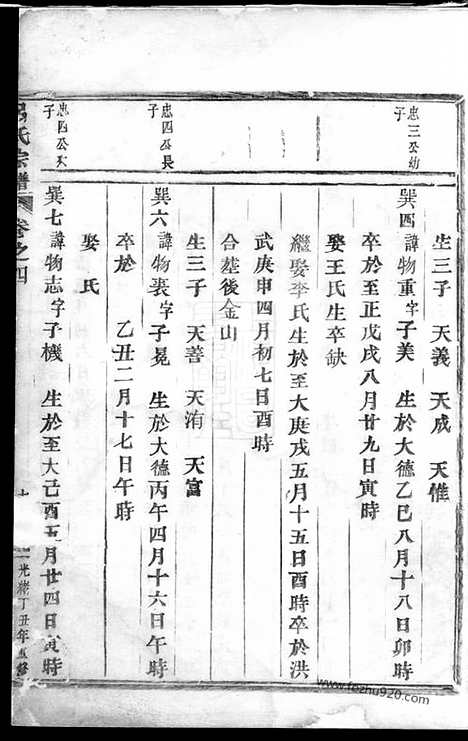 生三子 天義 天成 天惟
忠三公幼子
巽四諱物重字子美 生於大德乙巳八月十八日卯時
卒於至正戊戌八月廿九日寅時
娶王氏生卒缺
繼娶李氏生於至大庚戌五月十五日酉時卒於洪
武庚申四月初七日酉時
合墓後金山
生三子 天善 天洧 天富
忠四公長子
巽六諱物裘字子晃 生於大德丙午四月十六日午時
卒於 乙丑二月十七日午時
娶 氏
忠四公次子
巽七諱物志字子機 生於至大己酉五月廿四日寅時
氏宗譜 卷之四 十 光緒丁丑年重修
www.fezhu920.com